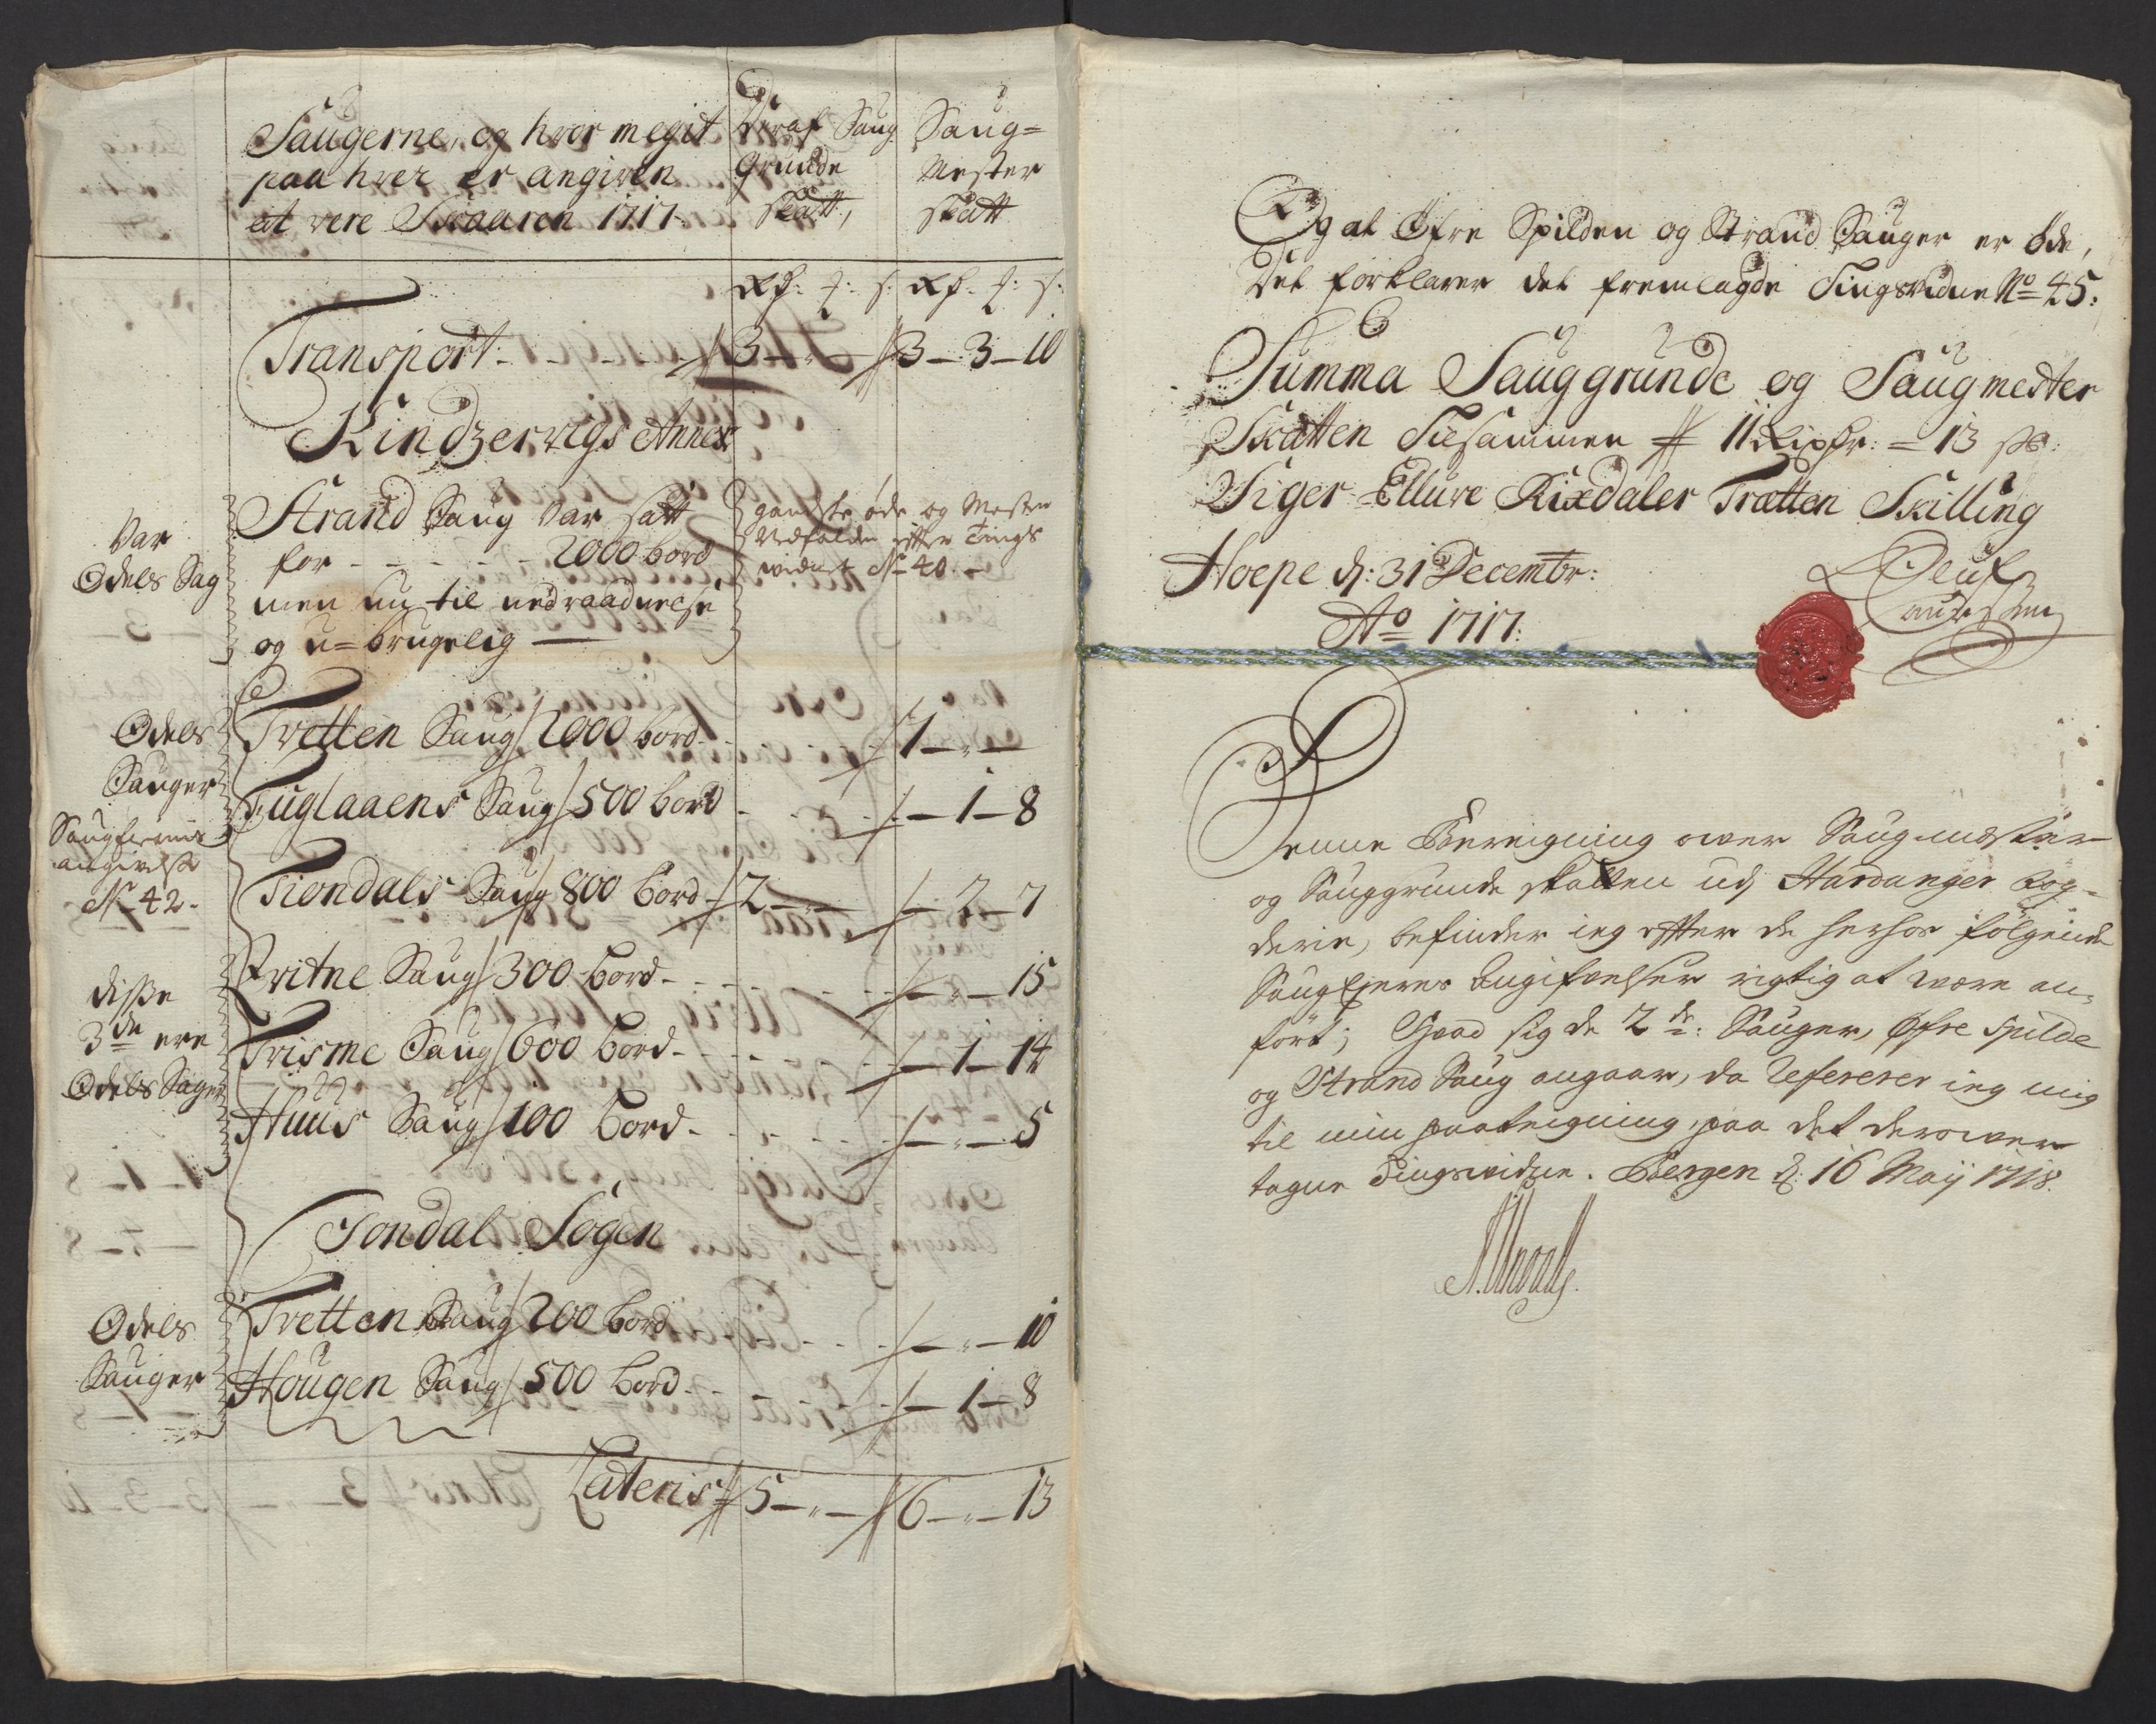 Saugerne, og hvor megit
paa hver er angiven
at vere Skaaren 1717.
Deraf Saug
Grunde
skatt,
Saug=
Mester
skatt
Rd: : s: Rd: : s:
Transport - 3 - " - 3 - 3 - 10
Kindzervigs Annex
Var
Odels Sag
Strand Saug var satt
for - - - - - 2000 bord
men nu til nedraadnelse
og u=brugelig —
gandske øde og Mester
Nedfalden efter Tings
widnet No 40. -
Odels
Sauger
Saugfermes
angivelse
No 42.
Tretten Saug / 2000 bord - 1 - " -
Fuglaaens Saug / 500 bord - - 1 - 8
Tiondals Saug / 800 bord - 2 - " - - 2 - 7
disse
3de ere
Odels Sager
Qvitne Saug / 300 bord - - " - 15
Trisme Saug / 600 bord - - 1 - 14
Huus Saug / 100 bord - - " - 5
Jondal Sogen
Odels
Sauger
Tretten Saug / 200 bord - " - 10
Hougen Saug / 500 bord - - 1 - 8
Lateris 5 - " - 6 - " - 13
Og at Øfre Spilden og Strand Sauger er øde,
Det forklarer det fremlagde Tingsvidne No 45:
Summa Sauggrunde og Saugmester
Skatten Tilsammen 11 Rixdr: = 13 sk:
Siger Elluve Rixdaler Tratten Skilling
Hoepe d: 31 Decembr:
Ao 1717:
Oluf
Denne Bereigning over Saugmester
og Sauggrunde skatten udj Hardanger Fog-
derie, befinder ieg effter de herhos følgende
Saug Ejeres Angifvelser rigtig at være an-
ført; Hvad sig de 2de: Sauger, Øfre Spilde
og Strand Saug angaar, da Refererer ieg mig
til min paateigning, paa det derover
tagne Tingsvidne. Bergen d: 16 Maij 1718.